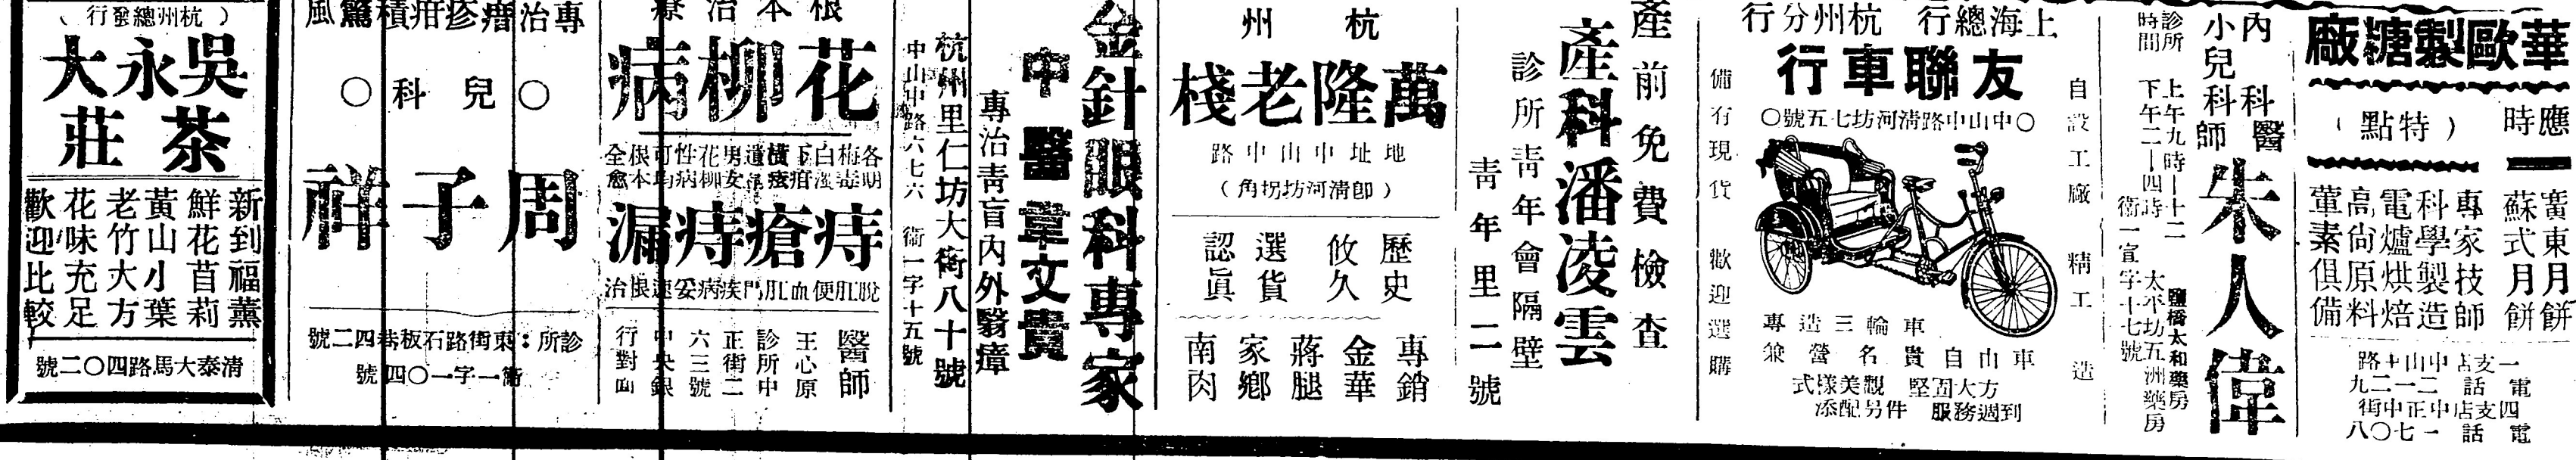 華歐製糖廠
應時
（特點）
廣東月餅
蘇式月餅
專家技師
科學製造
電爐烘焙
高尚原料
葷素俱備
一支店中山中路
電話二一二九
四支店中正中街
電話一七〇八
內科醫
小兒科師
朱人偉
診所時間
上午九時—十二
下午二—四時
鹽橋太和藥房
太平坊五洲藥房
衖一宣字十七號
上海總行　杭州分行
友聯車行
〇中山中路清河坊七五號〇
自設工廠　精工　造
備有現貨　歡迎選購
專造三輪車
兼營名貴自由車
式樣美觀堅固大方
添配另件　服務週到
產前免費檢查
產科潘凌雲
診所青年會隔壁
青年里二號
杭州
萬隆老棧
地址中山中路
（即清河坊拐角）
歷史
攸久
選貨
認眞
專銷
金華
蔣腿
家鄉
南肉
金針眼科專家
中醫章文貴
專治青盲內外翳瘴
杭州里仁坊大衖八十號
中山中路六七六　衖一字十五號
根本治療
花柳病
各期梅毒
白濁下疳
橫痃遺精
男女花柳
性病均可
根本全愈
痔瘡痔漏
脫肛便血肛門疾病妥速根治
醫師
王心原
診所中
正街二
六三號
中央銀
行對面
專治痧痘疹疳積驚風
〇兒科〇
周子祥
診所：東街路石板巷四二號
衖一字一〇四號
（杭州總發行）
吳永大
茶莊
新到福薰
鮮花苜莉
黃山小葉
老竹大方
花味充足
歡迎比較
清泰大馬路四〇二號